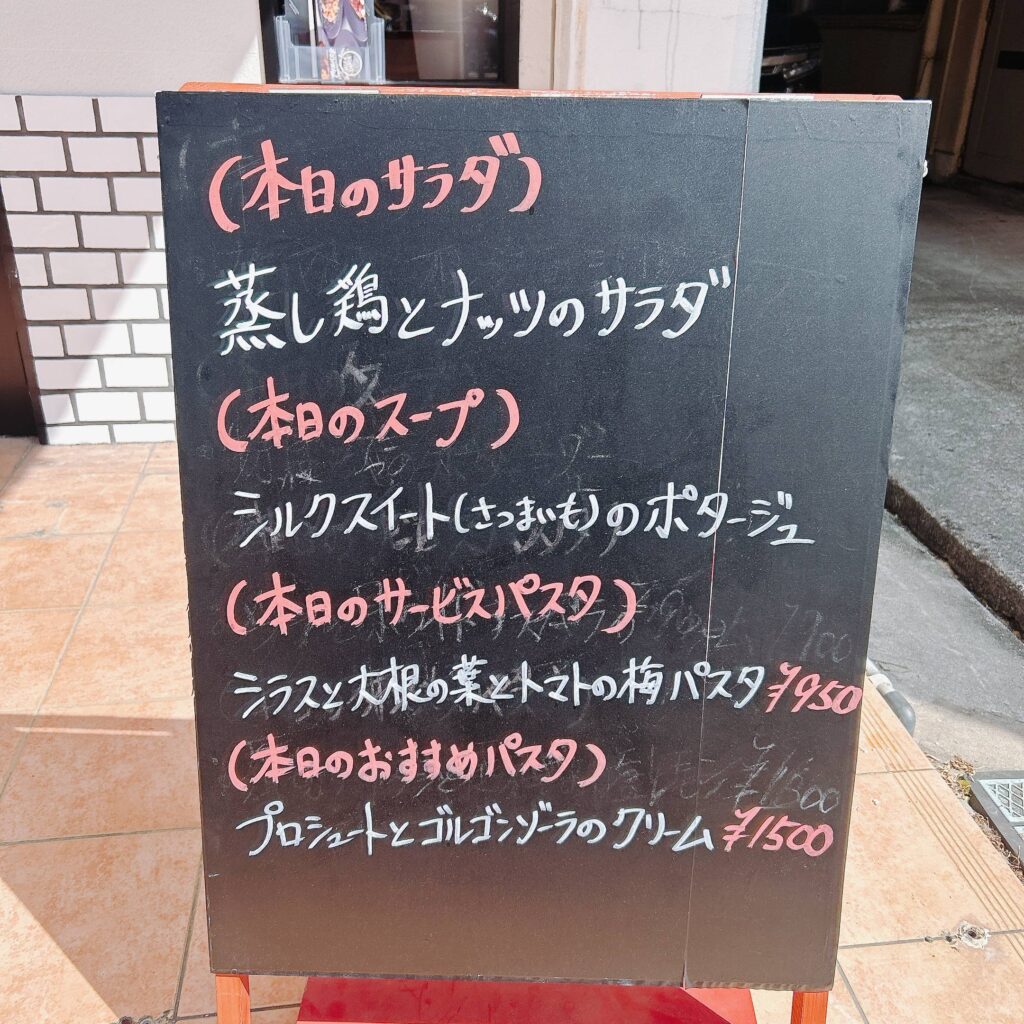 (本日のサラダ)
蒸し鶏とナッツのサラダ
(本日のスープ)
シルクスイート(さつまいも)のポタージュ
(本日のサービスパスタ)
シラスと大根の葉とトマトの梅パスタ ¥950
(本日のおすすめパスタ)
プロシュートとゴルゴンゾーラのクリーム ¥1500